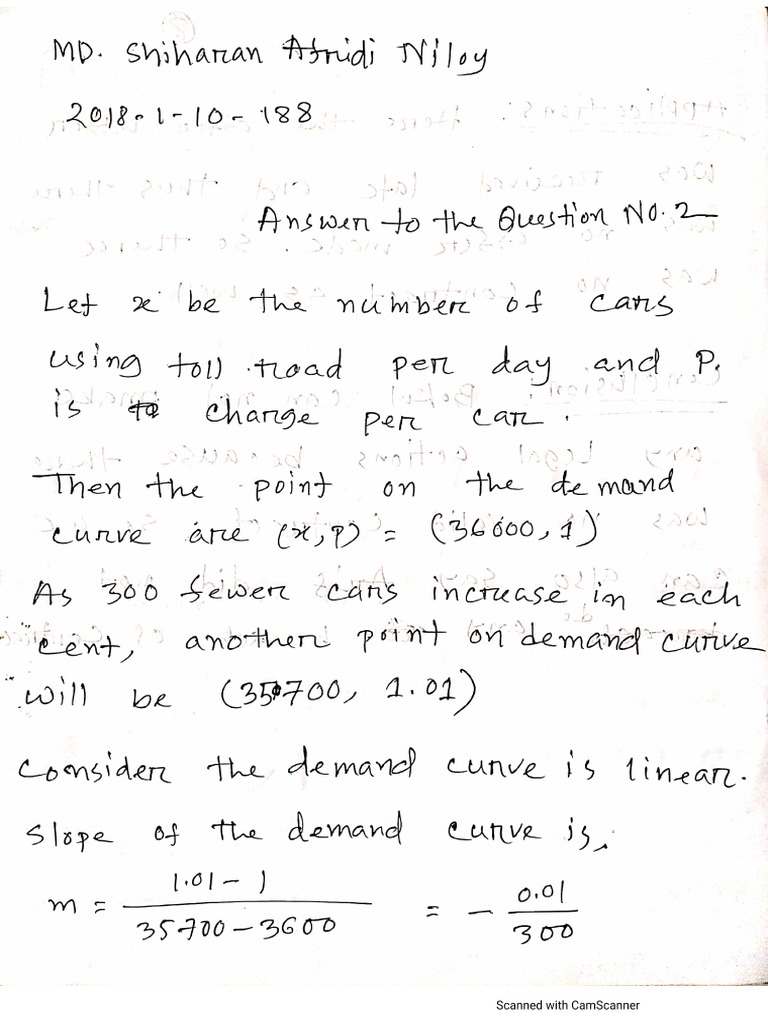 MD. Shiharan Afridi Niloy
2018-1-10-188
Answer to the Question No. 2
Let x be the number of cars
using toll road per day and P.
is charge per car.
Then the point on the demand
curve are (x,p) = (36000, 1)
As 300 fewer cars increase in each
cent, another point on demand curve
will be (35700, 1.01)
Consider the demand curve is linear.
Slope of the demand curve is,
m = (1.01 - 1) / (35700 - 3600) = - 0.01 / 300
Scanned with CamScanner